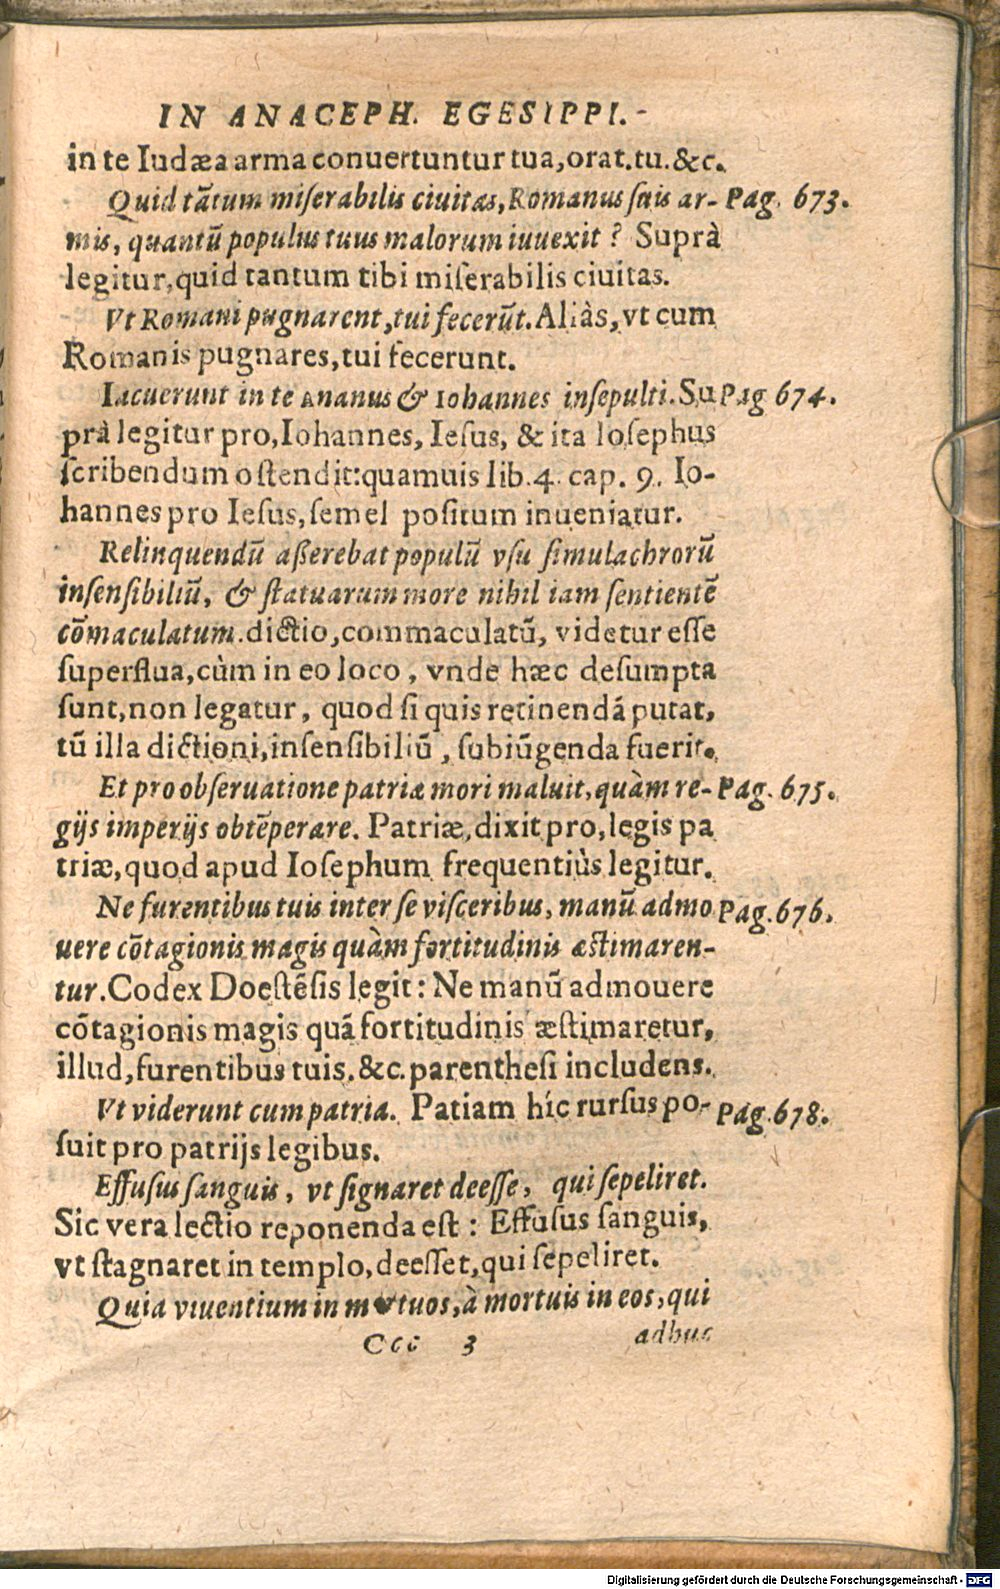 IN ANACEPH. EGESIPPI.
in te Iudæa arma conuertuntur tua, orat. tu. &c.
Quid tātum miserabilis ciuitas, Romanus suis ar- Pag. 673.
mis, quantū populus tuus malorum inuexit? Suprà
legitur, quid tantum tibi miserabilis ciuitas.
Vt Romani pugnarent, tui fecerūt. Aliàs, vt cum
Romanis pugnares, tui fecerunt.
Iacuerunt in te Ananus & Iohannes insepulti. Su Pag 674.
prà legitur pro, Iohannes, Iesus, & ita Iosephus
scribendum ostendit: quamuis lib. 4. cap. 9. Io-
hannes pro Iesus, semel positum inueniatur.
Relinquendū aßerebat populū vsu simulachrorū
insensibiliū, & statuarum more nihil iam sentientē
cōmaculatum. dictio, commaculatū, videtur esse
superflua, cùm in eo loco, vnde hæc desumpta
sunt, non legatur, quod si quis retinendā putat,
tū illa dictioni, insensibiliū, subiūgenda fuerit.
Et pro obseruatione patriæ mori maluit, quàm re- Pag. 675.
gijs imperijs obtēperare. Patriæ, dixit pro, legis pa
triæ, quod apud Iosephum frequentiùs legitur.
Ne furentibus tuis inter se visceribus, manū admo Pag. 676.
uere cōtagionis magis quàm fortitudinis æstimaren-
tur. Codex Doestēsis legit: Ne manū admouere
cōtagionis magis quā fortitudinis æstimaretur,
illud, furentibus tuis. &c. parenthesi includens.
Vt viderunt cum patria. Patiam híc rursus po- Pag. 678.
suit pro patrijs legibus.
Effusus sanguis, vt signaret deesse, qui sepeliret.
Sic vera lectio reponenda est: Effusus sanguis,
vt stagnaret in templo, deesset, qui sepeliret.
Quia viuentium in mortuos, à mortuis in eos, qui
Ccc 3 adhuc
Digitalisierung gefördert durch die Deutsche Forschungsgemeinschaft - DFG